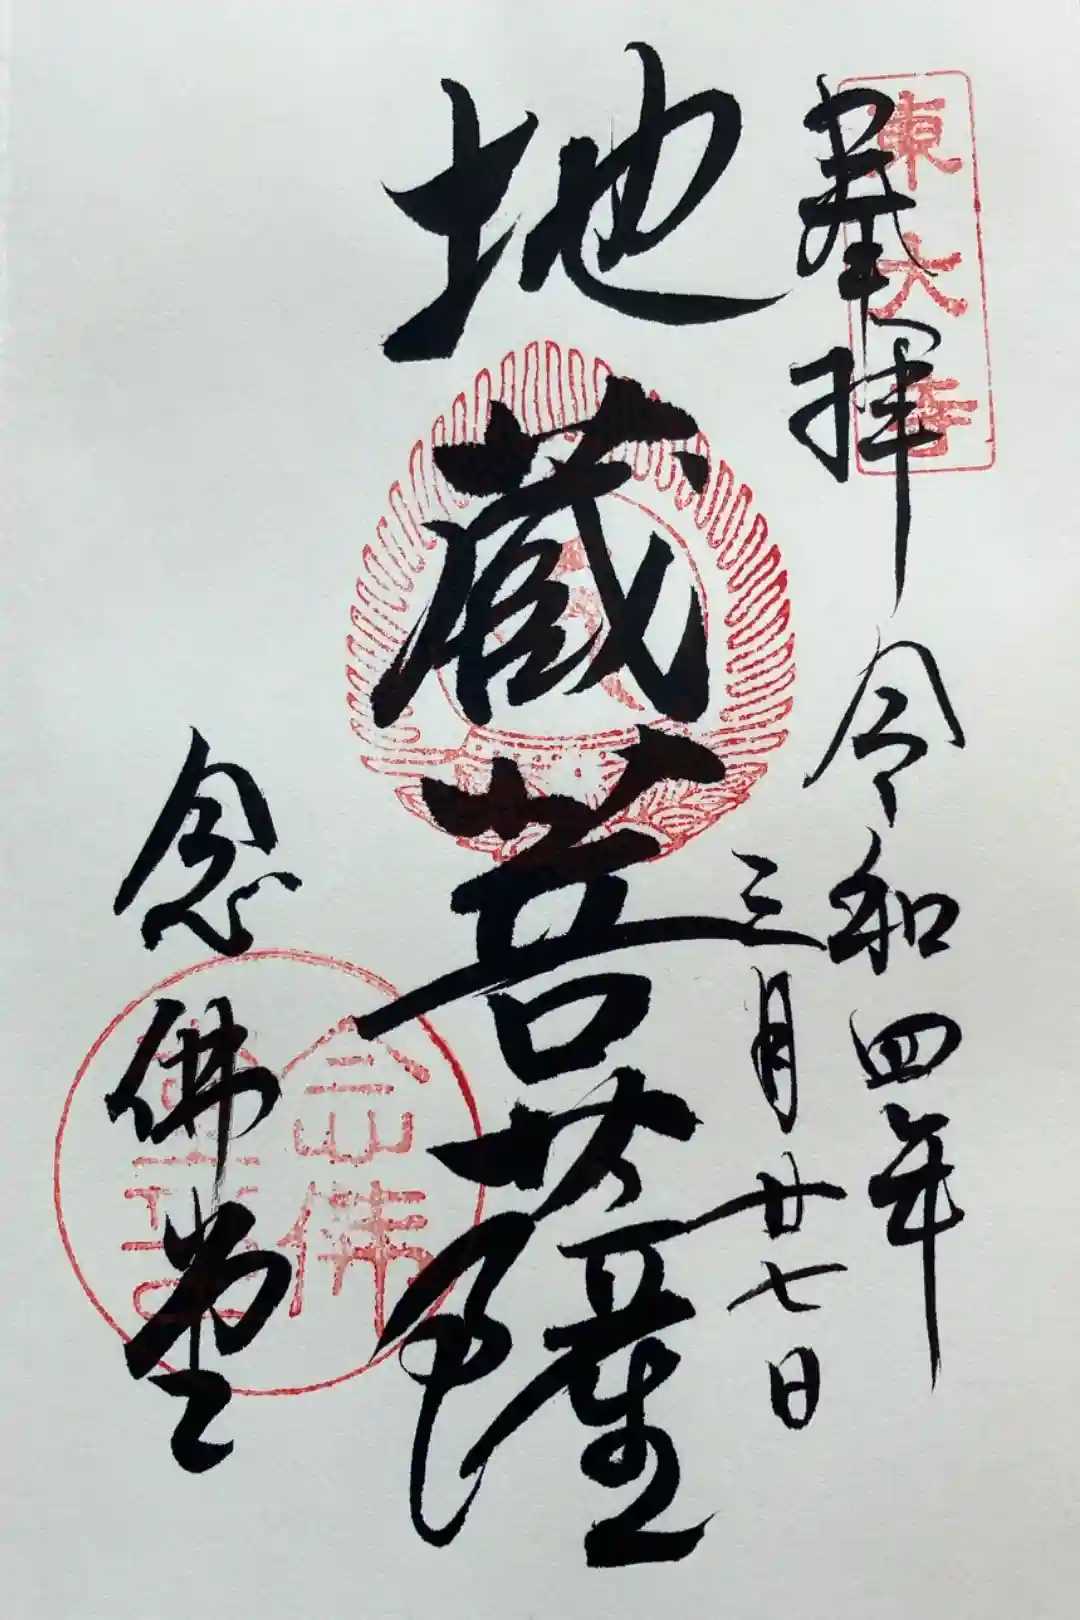 奉拝
東大寺
令和四年
三月廿七日
地蔵菩薩
念佛堂